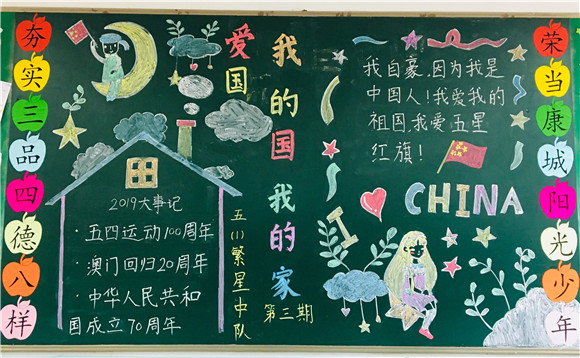 夯实三品四德八样
爱国
2019大事记
·五四运动100周年
·澳门回归20周年
·中华人民共和
国成立70周年
五(1)繁星中队
我的国我的家
第三期
我自豪,因为我是
中国人!我爱我的
祖国,我爱五星
红旗!
I
CHINA
荣当康城阳光少年